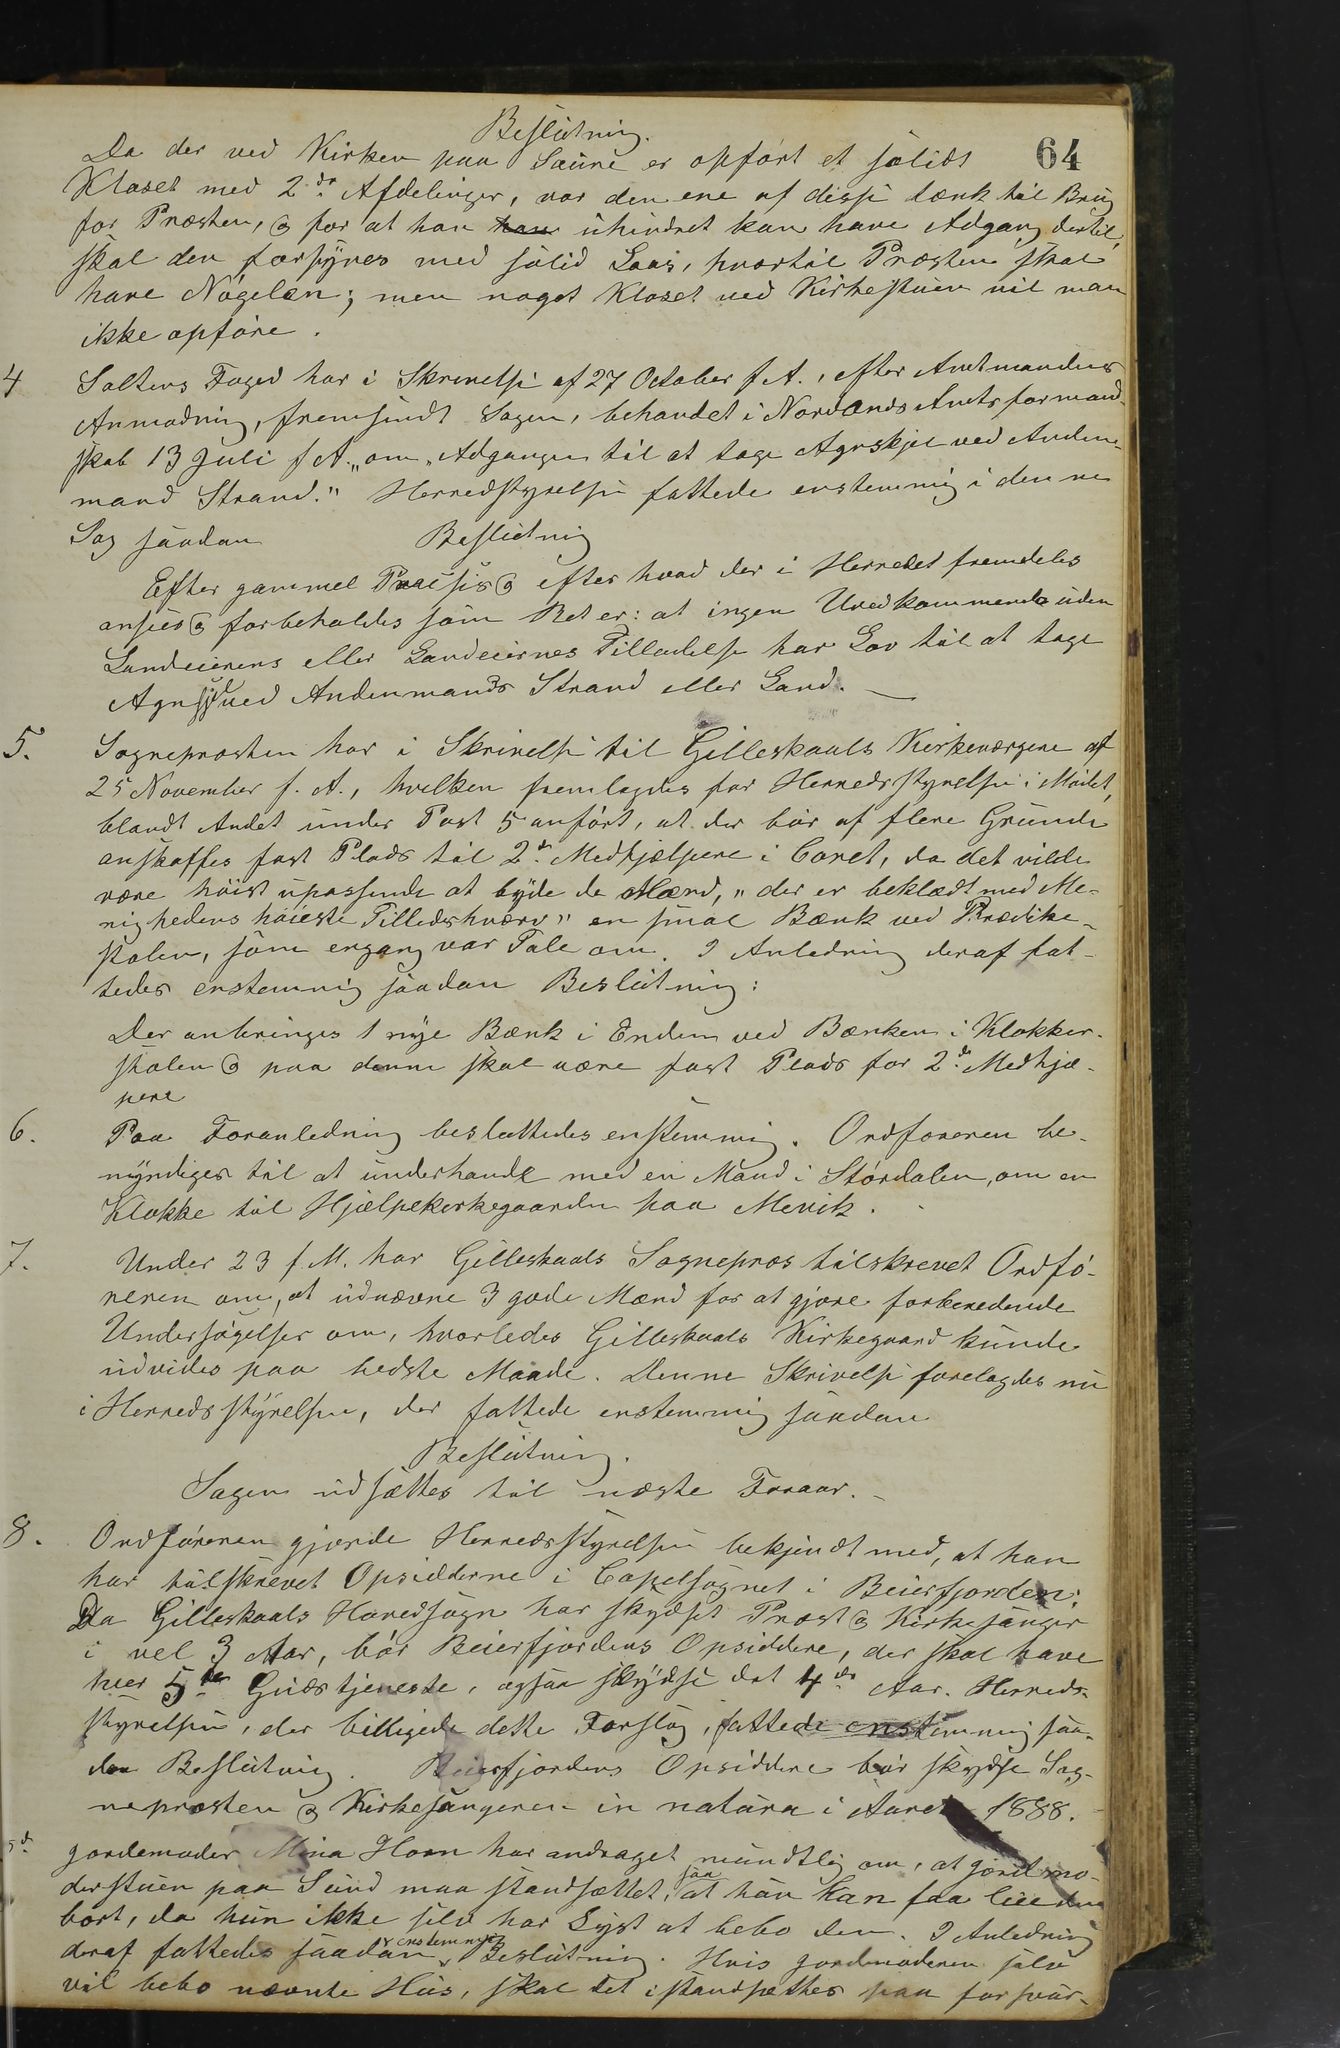 64
Beslutning.
Da der ved Kirken paa Saura er opført et solidt
Kloset med 2de Afdelinger, var den ene af disse tænk til Brug
for Præsten, & for at han han uhindret kan have Adgang dertil,
skal den forsynes med solid Laas, hvortil Præsten skal
have Nøgelen; men noget Kloset ved Kirkestuen vil man
ikke opføre.
4 Saltens Foged har i Skrivelse af 27 October f. A., efter Amtmandens
Anmodning, fremsendt Sagen, behandlet i Nordlands Amtsformand-
skab 13 Juli f A. „om „Adgangen til at tage Agnskjel ved Anden-
mands Strand." Herredstyrelsen fattede enstemmig i denne
Sag saadan Beslutning
Efter gammel Praksis & efter hvad der i Herredet fremdeles
ansees & forbeholdes som Ret er: at ingen Uvedkommende uden
Landeierens eller Landeiernes Tilladelse har Lov til at tage
Agnskjel ved Andenmands Strand eller Land. —
5. Sognepræsten har i Skrivelse til Gilleskaals Kirkeværgene af
25 November f. A., hvilken fremlagdes for Herredsstyrelsen i Mødet,
blandt Andet under Post 5 anført, at der bør af flere Grunde
anskaffes fast Plads til 2de Medhjælpere i Coret, da det vilde
være høist upassende at byde de Mænd, „der er beklædt med Me-
nighedens høieste Tillidshværv" en smal Bænk ved Prædike-
stolen, som engang var Tale om. I Anledning deraf fat-
tedes enstemmig saadan Beslutning:
Der anbringes 1 nye Bænk i Enden ved Bænken i Klokker-
stolen & paa denne skal være fast Plads for 2de Medhjæ-
pere
6. Paa Foranledning besluttedes enstemmig. Ordføreren be-
myndiges til at underhandle med en Mand i Størdalen, om en
Klokke til Hjælpekirkegaarden paa Mevik.
7. Under 23 f. M. har Gilleskaals Sognepræs tilskrevet Ordfø-
reren om, at udnævne 3 gode Mænd for at gjøre forberedende
Undersøgelser om, hvorledes Gilleskaals Kirkegaard kunde
udvides paa bedste Maade. Denne Skrivelse forelagdes nu
i Herredsstyrelsen, der fattede enstemmig saadan
Beslutning.
Sagen udsættes til næste Foraar. –
8. Ordføreren gjorde Herredsstyrelsen bekjendt med, at han
har tilskrevet Opsidderne i Capelsognet i Beierfjorden:
Da Gilleskaals Hovedsogn har skydset Præst & Kirkesanger
i vel 3 Aar, bør Beierfjordens Opsiddere, der skal have
hver 5te Gudstjeneste, ogsaa skydse det 4de Aar. Herreds-
styrelsen, der billigede dette Forslag, fattede enstemmig saa-
dan Beslutning. Beierfjordens Opsiddere bør skydse Sog-
nepræsten & Kirkesangeren in natura i Aaret 1888.
Jordemoder Mina Horn har andraget mundtlig om, at Jordmo-
derstuen paa Sund maa istandsættes, saa at hun kan faa leie den
bort, da hun ikke selv har Lyst at bebo den. I Anledning
deraf fattedes saadan enstemmig Beslutning. Hvis Jordmoderen selv
vil bebo nævnte Hus, skal det istandsættes paa forsvar-